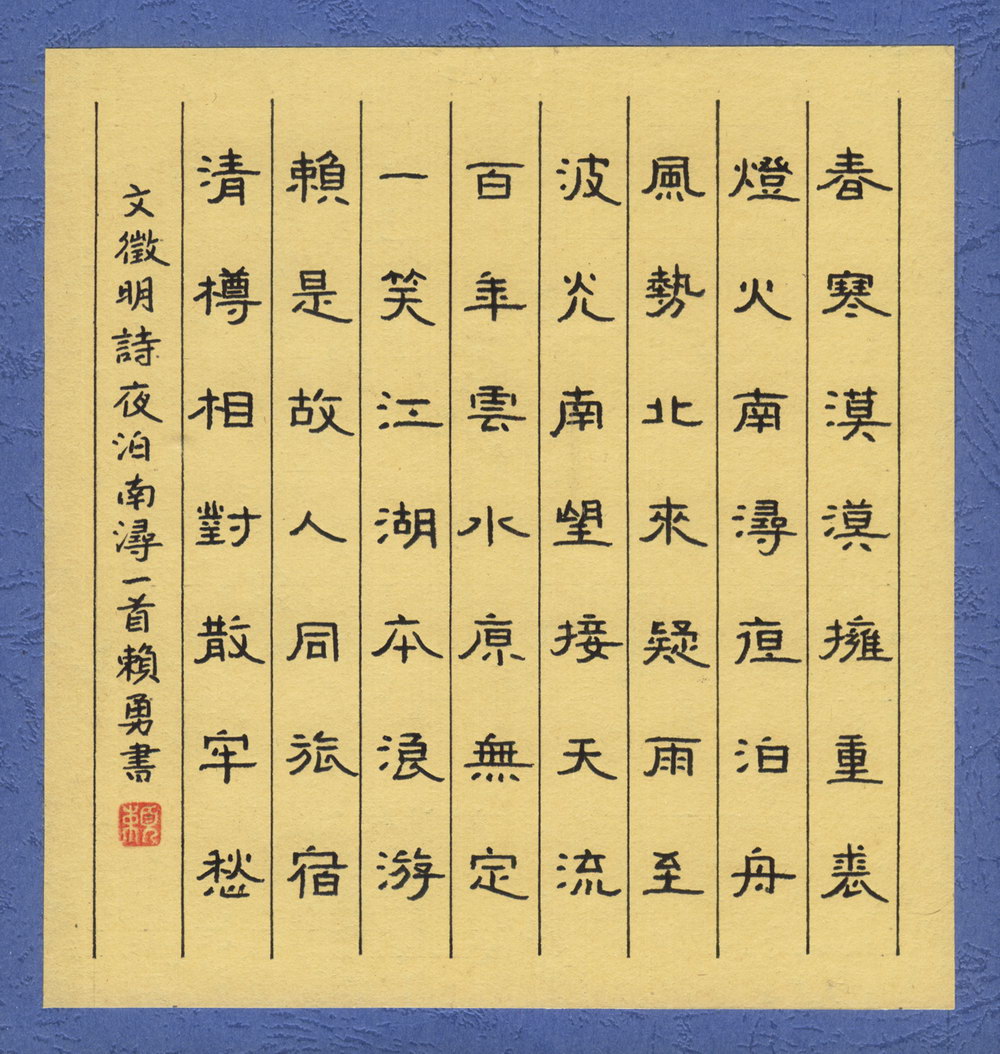 春寒漠漠擁重裘
燈火南潯亱泊舟
風勢北來疑雨至
波光南望接天流
百年雲水原無定
一笑江湖本浪游
賴是故人同旅宿
清樽相對散牢愁
文徵明詩夜泊南潯一首賴勇書
賴